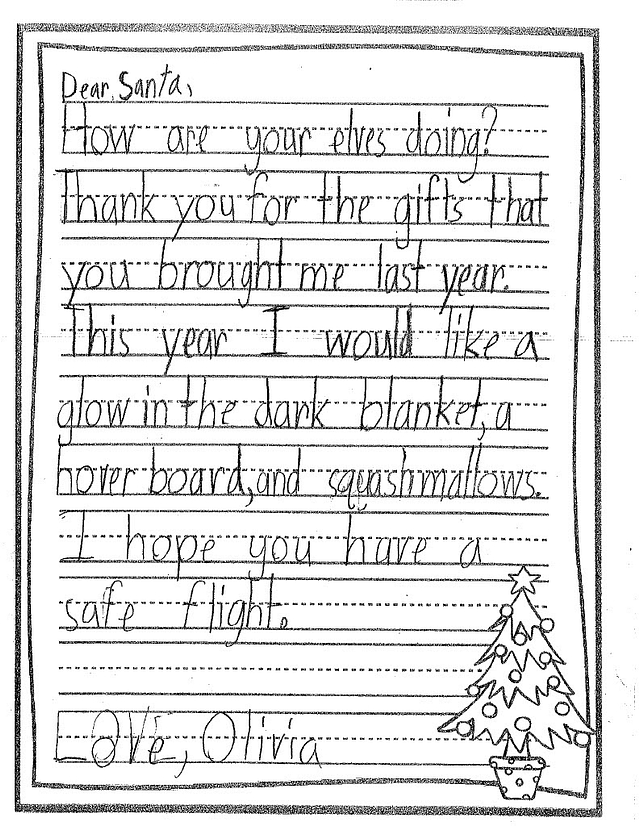 Dear Santa,
How are your elves doing?
Thank you for the gifts that
you brought me last year.
This year I would like a
glow in the dark blanket, a
hover board, and squashmallows.
I hope you have a
safe flight.
Love, Olivia